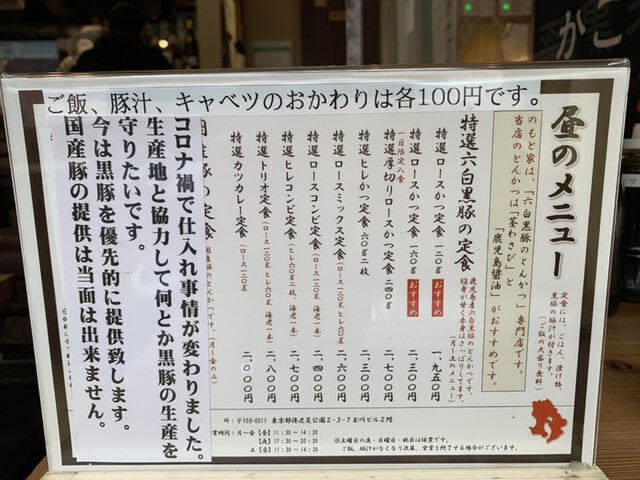 ご飯、豚汁、キャベツのおかわりは各100円です。
昼のメニュー
定食には、ごはん、漬け物、
黒豚の豚汁が付きます。
(ご飯の大盛り無料)
のもと家は、「六白黒豚のとんかつ」専門店です。
当店のとんかつは「茎わさび」と
「鹿児島醤油」がおすすめです。
特選六白黒豚の定食
鹿児島産六白黒豚のとんかつです。
脂身が甘く赤身はさっぱりしてます。
(月〜土のメニュー)
特選ロースかつ定食 一三〇g おすすめ 一、九五〇円
特選ロースかつ定食 一六〇g おすすめ 二、三〇〇円
一日限定八食
特選厚切りロースかつ定食 二四〇g 二、七〇〇円
特選ヒレかつ定食 六〇g二枚 二、三〇〇円
特選ロースミックス定食(ロース一三〇g、ヒレ六〇g) 二、六〇〇円
特選ロースコンビ定食(ロース一三〇g、海老一本) 二、四〇〇円
特選ヒレコンビ定食(ヒレ六〇g二枚、海老一本) 二、七〇〇円
特選トリオ定食(ロース一三〇g、ヒレ六〇g、海老一本) 二、八〇〇円
特選カツカレー定食(ロース一三〇g) 二、〇〇〇円
国産豚の定食
(月〜金のみ)
コロナ禍で仕入れ事情が変わりました。
生産地と協力して何とか黒豚の生産を
守りたいです。
今は黒豚を優先的に提供致します。
国産豚の提供は当面は出来ません。
所:〒105-0011 東京都港区芝公園2-3-7玉川ビル2階
営業時間:月〜金【昼】11:30〜14:30
【夜】17:30〜20:30
土【昼】11:30〜14:30
※土曜日の夜・日曜日・祝日は休業です。
ご飯、豚汁がなくなり次第、営業を終了する場合がございます。